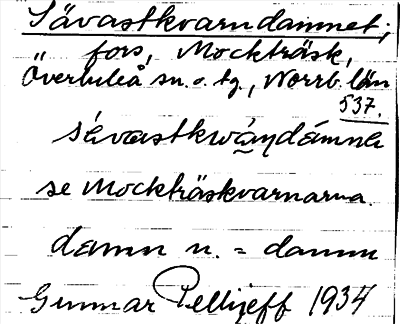 Sävastkvarndammet;
fors, Mockträsk,
Överluleå sn. o. tg., Norrb. län
537.
sévastkwándámnh
se Mockträskkvarnarna.
damn n. = damm
Gunnar Pellijeff 1934